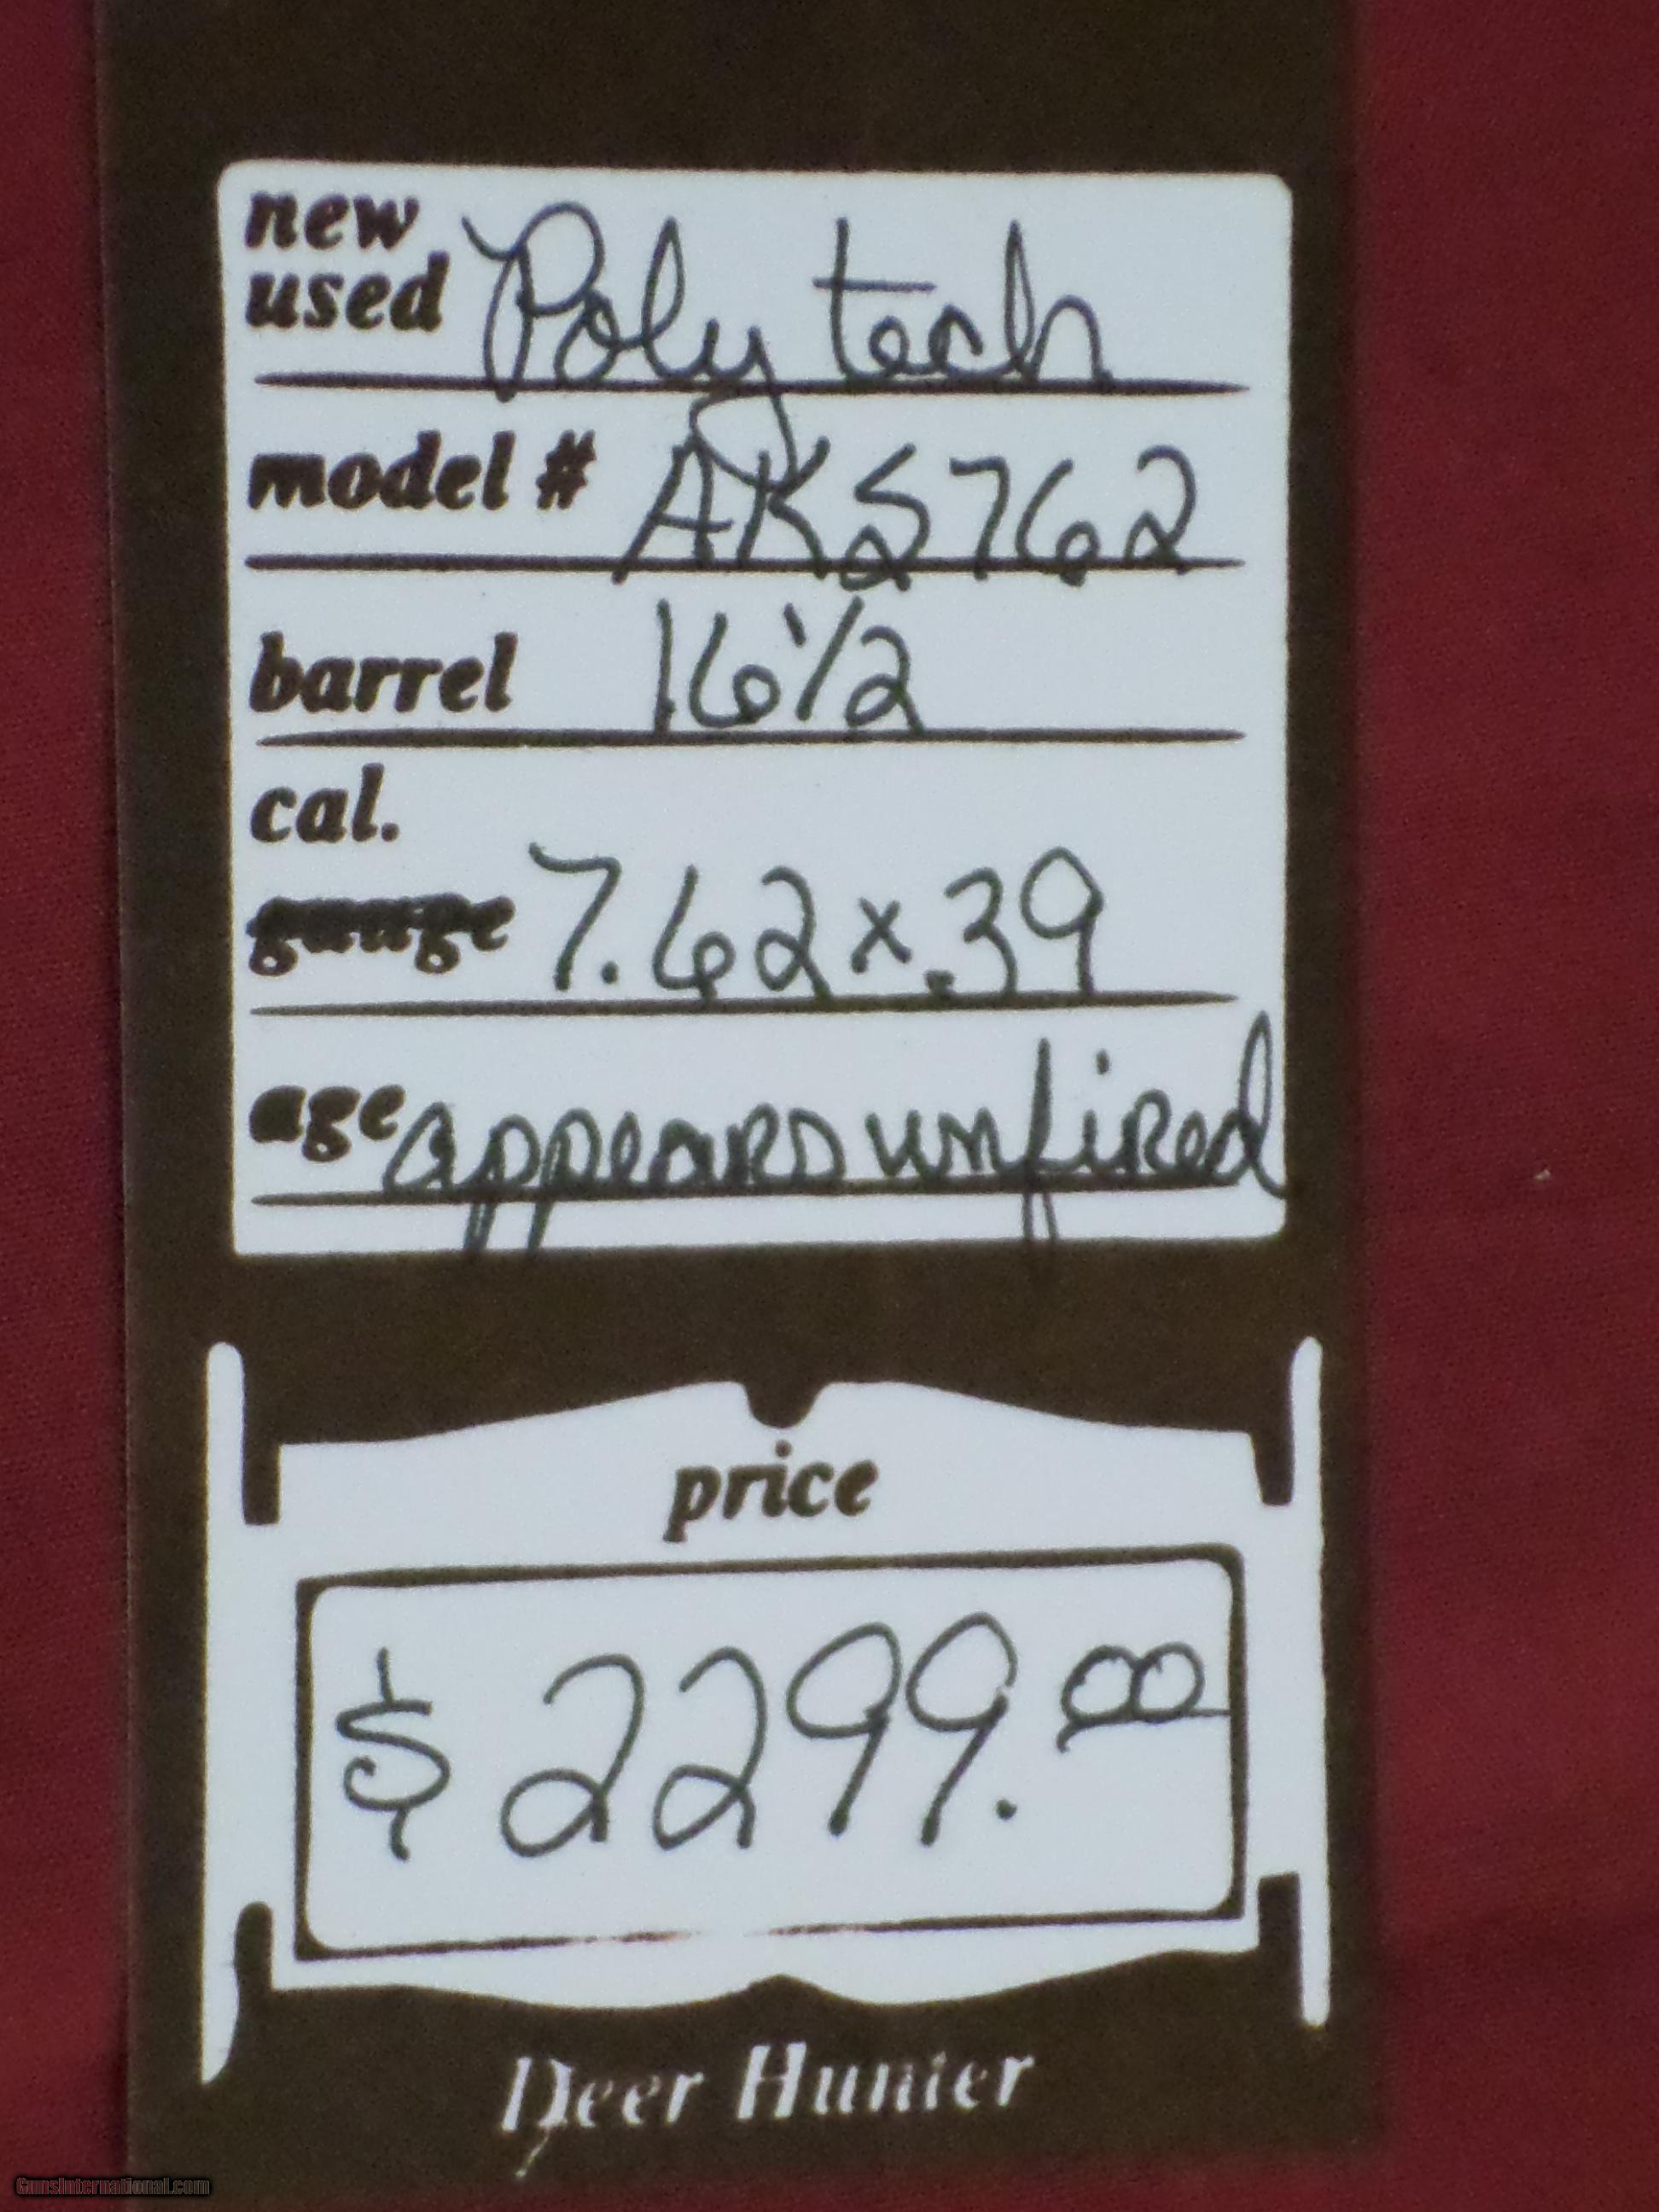 new
used Poly tech
model # AKS762
barrel 16 1/2
cal.
gauge 7.62x.39
age appears unfired
price
$2299.00
Deer Hunter
GunsInternational.com